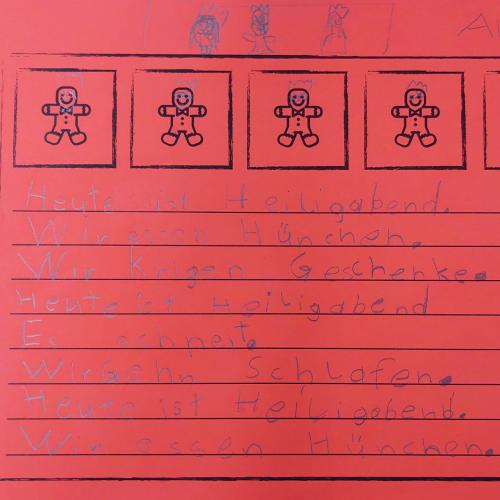 Heute ist Heiligabend.
Wir essen Hünchen.
Wir krigen Geschenke.
Heute ist Heiligabend
Es schneit.
Wir Gehn Schlafen.
Heute ist Heiligabend.
Wir essen Hünchen.